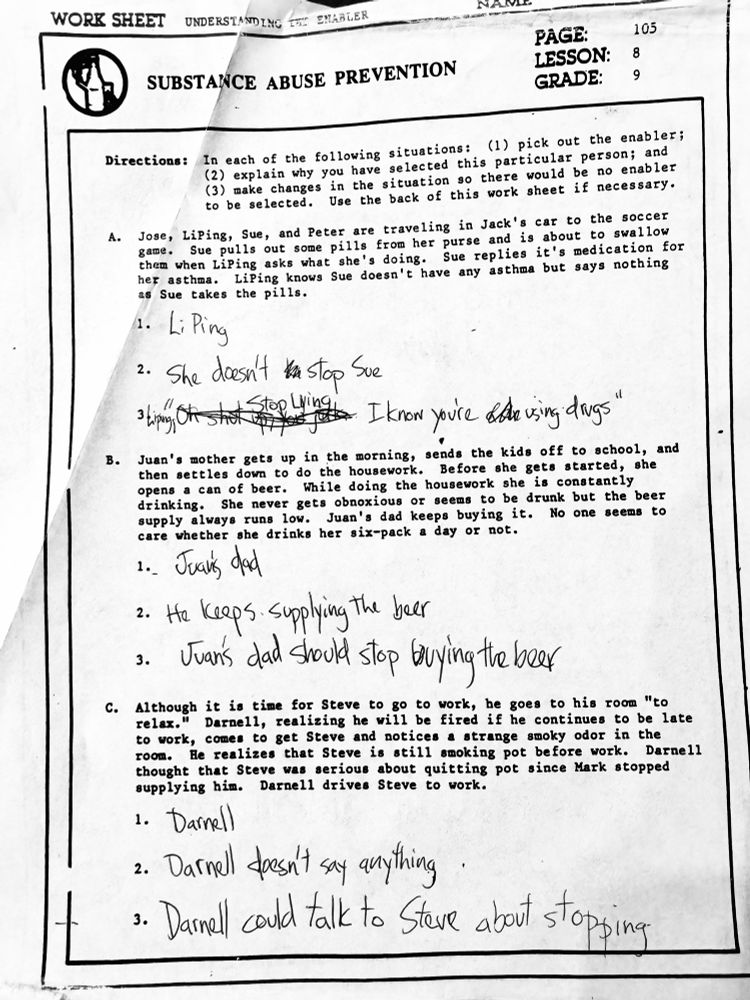 WORK SHEET UNDERSTANDING THE ENABLER NAME
PAGE: 105
LESSON: 8
GRADE: 9
SUBSTANCE ABUSE PREVENTION
Directions: In each of the following situations: (1) pick out the enabler;
(2) explain why you have selected this particular person; and
(3) make changes in the situation so there would be no enabler
to be selected. Use the back of this work sheet if necessary.
A. Jose, LiPing, Sue, and Peter are traveling in Jack's car to the soccer
game. Sue pulls out some pills from her purse and is about to swallow
them when LiPing asks what she's doing. Sue replies it's medication for
her asthma. LiPing knows Sue doesn't have any asthma but says nothing
as Sue takes the pills.
1. Li Ping
2. She doesn't stop Sue
3. Liping, "Stop Lying I know you're using drugs"
B. Juan's mother gets up in the morning, sends the kids off to school, and
then settles down to do the housework. Before she gets started, she
opens a can of beer. While doing the housework she is constantly
drinking. She never gets obnoxious or seems to be drunk but the beer
supply always runs low. Juan's dad keeps buying it. No one seems to
care whether she drinks her six-pack a day or not.
1. Juan's dad
2. He keeps supplying the beer
3. Juan's dad should stop buying the beer
C. Although it is time for Steve to go to work, he goes to his room "to
relax." Darnell, realizing he will be fired if he continues to be late
to work, comes to get Steve and notices a strange smoky odor in the
room. He realizes that Steve is still smoking pot before work. Darnell
thought that Steve was serious about quitting pot since Mark stopped
supplying him. Darnell drives Steve to work.
1. Darnell
2. Darnell doesn't say anything.
3. Darnell could talk to Steve about stopping.